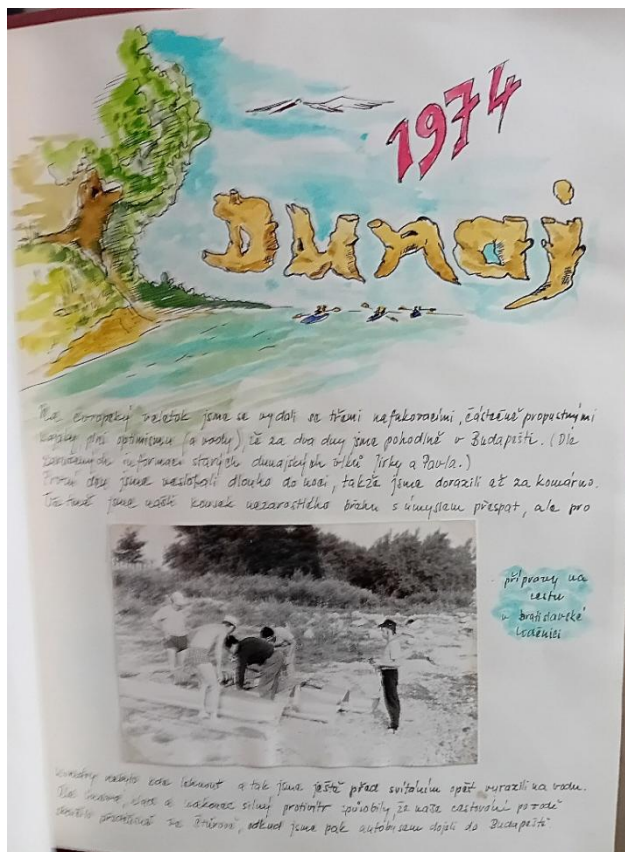 1974
Dunaj
Na evropský veletok jsme se vydali se třemi nafukovacími, částečně propustnými
kajaky plni optimismu (a vody), že za dva dny jsme pohodlně v Budapešti. (Dle
zaručených informací starých dunajských vlků Jirky a Pavla.)
První den jsme veslovali dlouho do noci, takže jsme dorazili až za Komárno.
Už tmě jsme našli kousek nezarostlého břehu s úmyslem přespat, ale pro
přípravy na
cestu
v bratislavské
loděnici
nebylo kde lehnout a tak jsme ještě před svítáním opět vyrazili na vodu.
a nakonec silný protivítr způsobily, že naše cestování po vodě
ve Štúrově, odkud jsme pak autobusem dojeli do Budapešti.